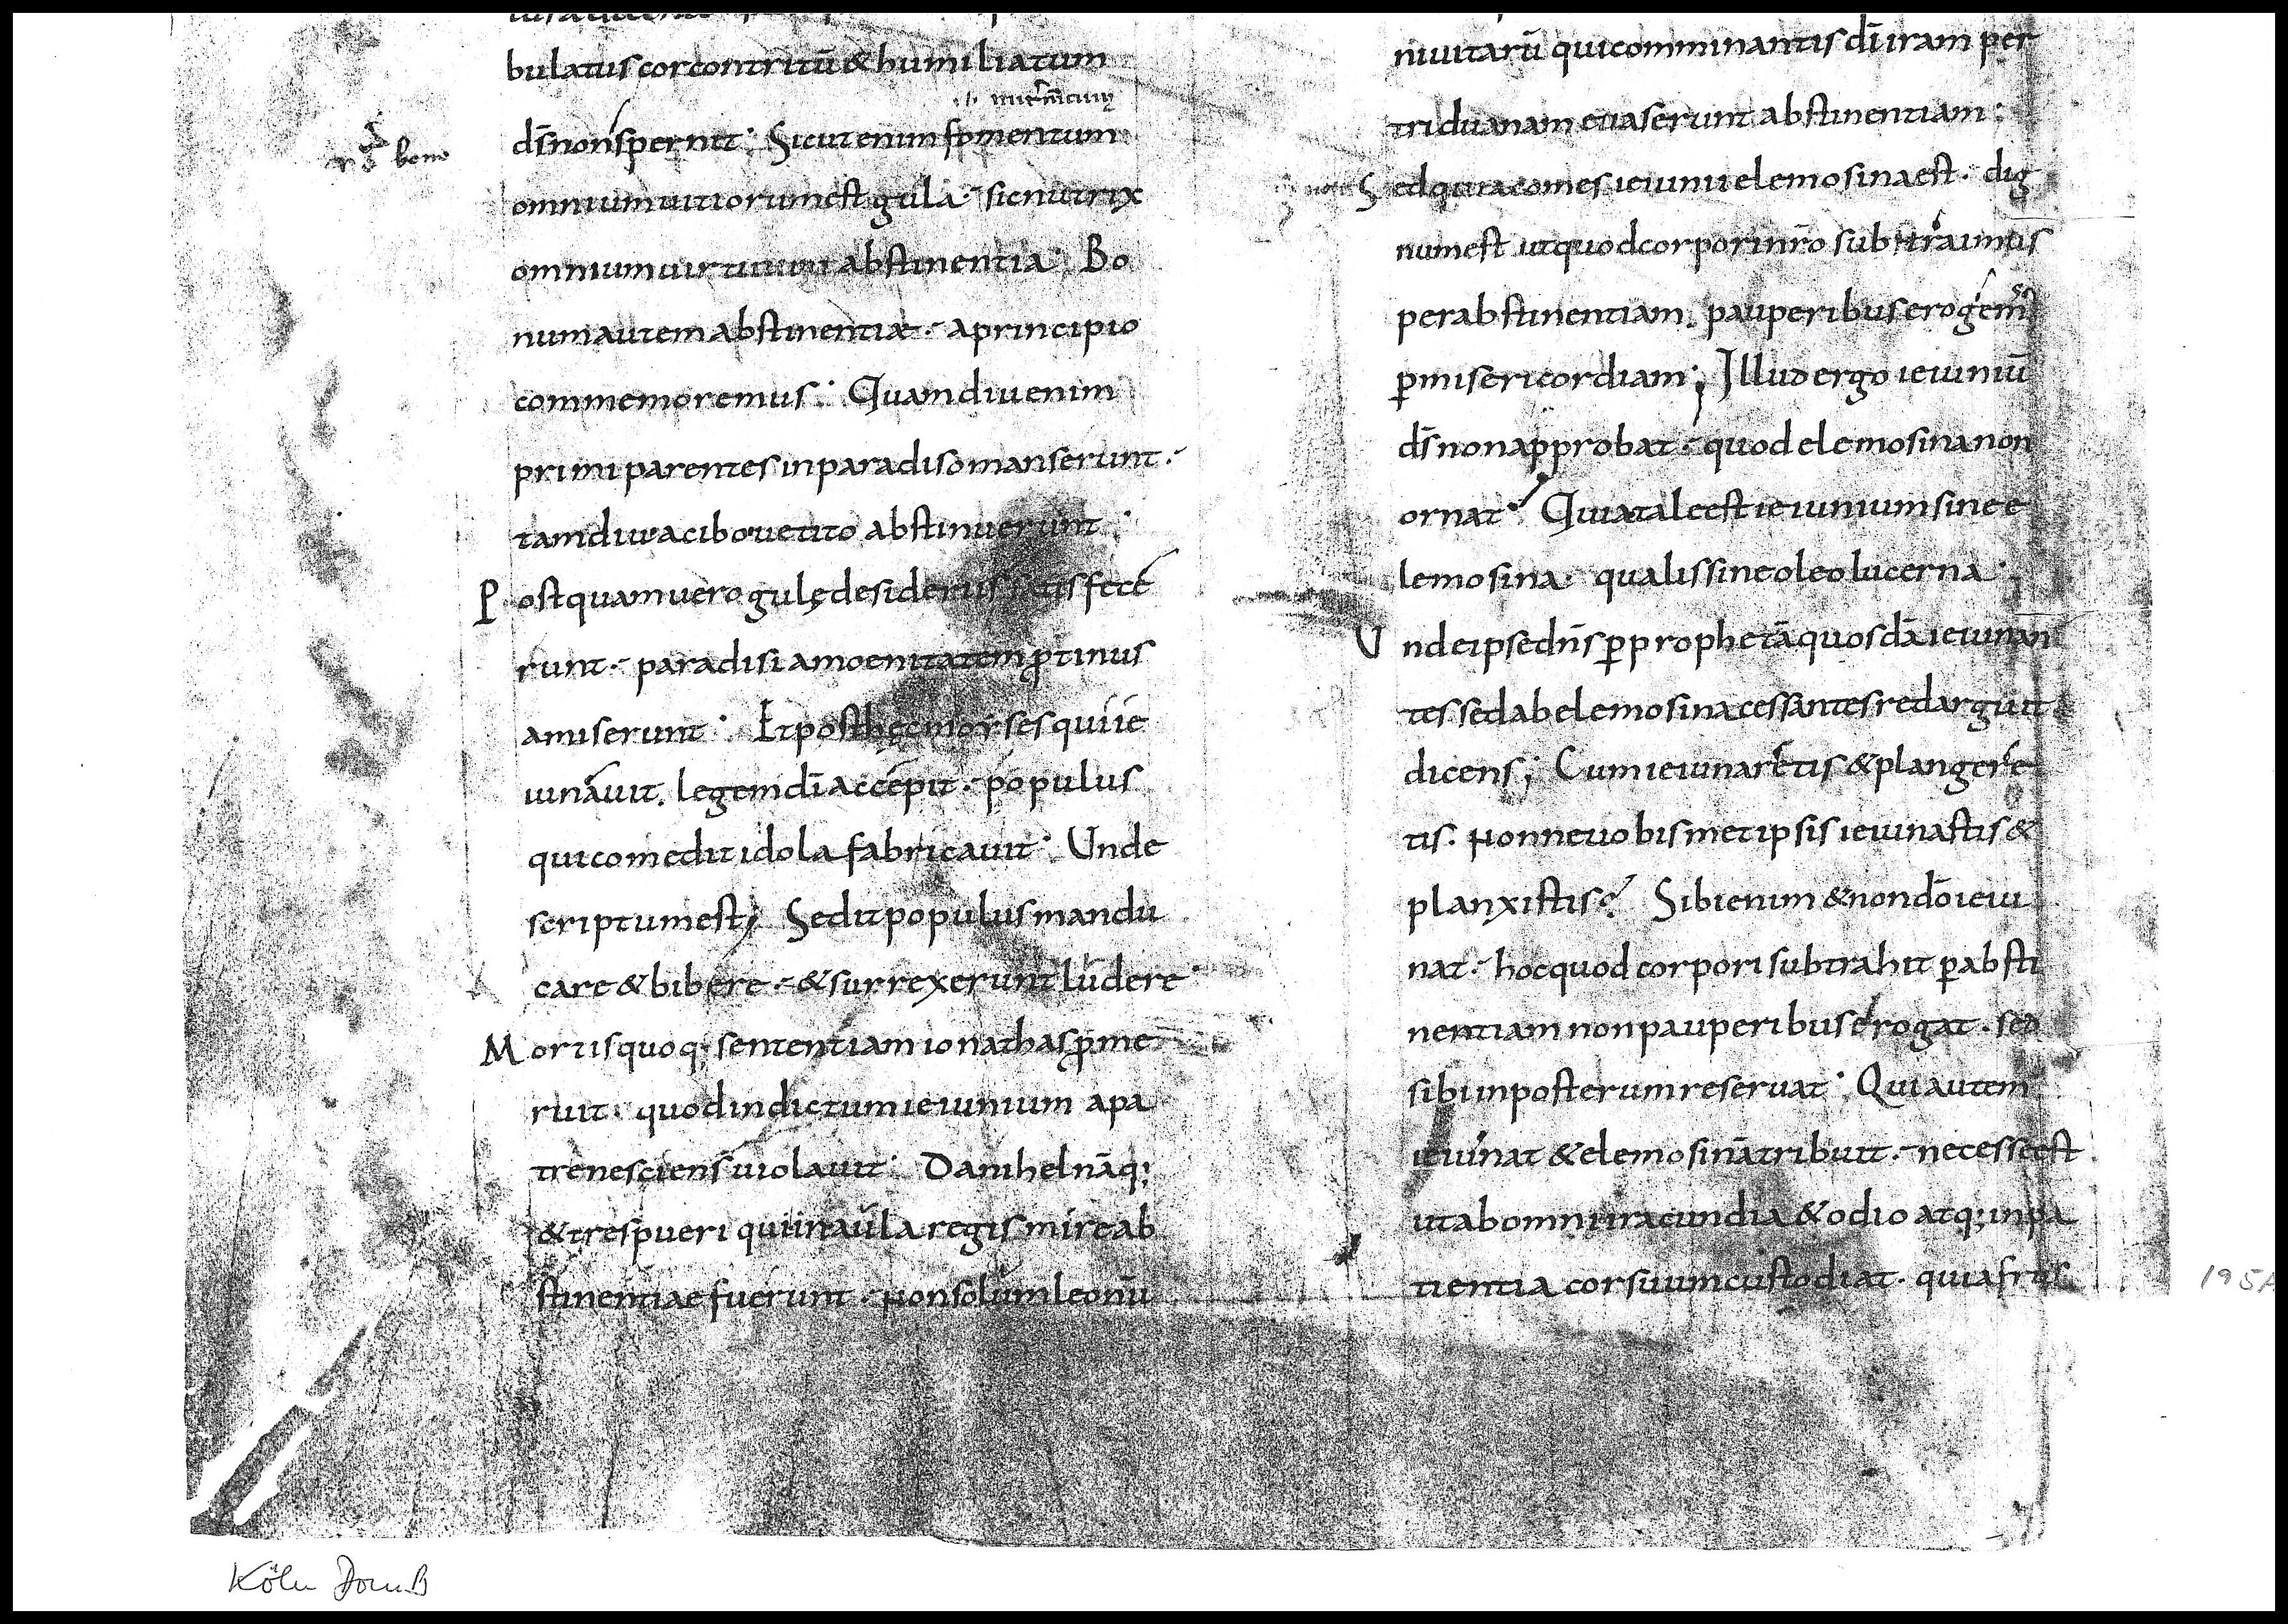 bulatus cor contritū & humiliatum
nutrim̄tum
d̄s non spernit; Sicut enim fomentum
omnium uitiorum est gula. sic nutrix
omnium uirtutum abstinentia; Bo
num autem abstinentiæ. a principio
commemoremus; Quamdiu enim
primi parentes in paradiso manserunt.
tamdiu a cibo uetito abstinuerunt;
Postquam uero gulę desideriis satisfece
runt. paradisi amoenitatem ꝓtinus
amiserunt; Et post hęc moyses qui ie
iunauit. legem dī accepit. populus
qui comedit idola fabricauit; Unde
scriptum est; Sedit populus mandu
care & bibere. & surrexerunt ludere
Mortis quoq; sententiam ionathas ꝓme
ruit. quod indictum ieiunium a pa
tre nesciens uiolauit; Danihel nāq;
& tres pueri qui in aula regis mire ab
stinentiae fuerunt. Non solum leonū
niuitarū qui comminantis dī iram per
triduanam euaserunt abstinentiam;
Sed quia comes ieiunii elemosina est. dig
num est ut quod corpori nr̄o subtrauimus
per abstinentiam. pauperibus erogem'
ꝑ misericordiam; Illud ergo ieiuniū
d̄s non approbat. quod elemosina non
ornat; Quia tale est ieiunium sine e
lemosina. qualis sine oleo lucerna;
Unde ipse dn̄s ꝑ prophetā quosdā ieiunan
tes sed ab elemosina cessantes redarguit
dicens; Cum ieiunaretis & plangere
tis. Nonne uobismetipsis ieiunastis &
planxistis? Sibi enim & non dō ieiu
nat. hoc quod corpori subtrahit ꝑ absti
nentiam non pauperibus erogat. sed
sibi in posterum reseruat; Qui autem
ieiunat & elemosinā tribuit. necesse est
ut ab omni iracundia & odio atq; inpa
tientia cor suum custodiat. quia frus
195A
Köln DomB